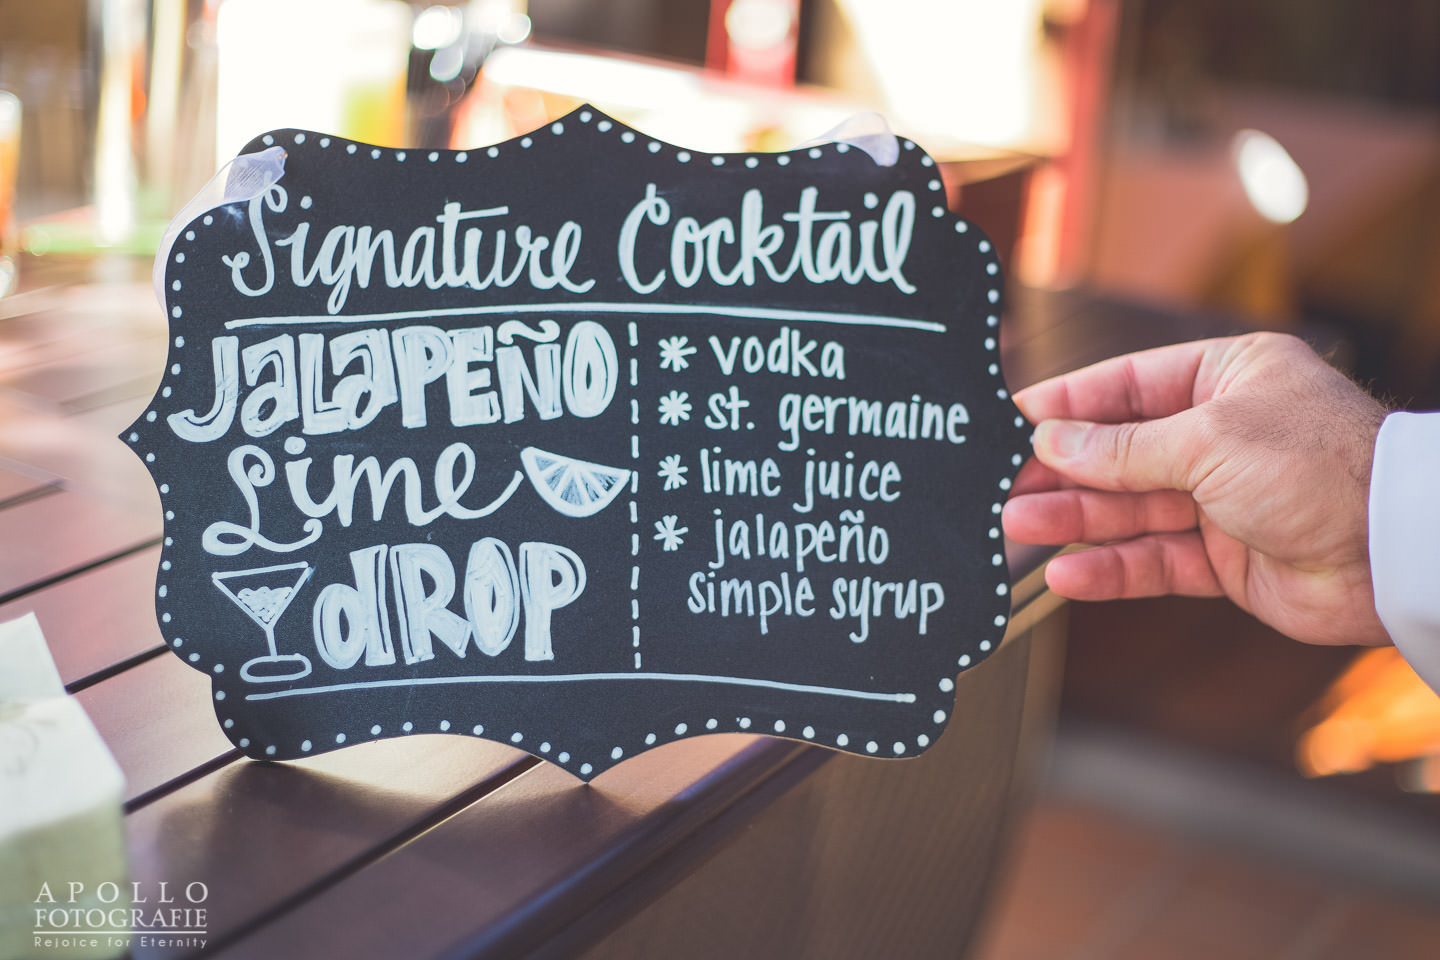 Signature Cocktail
JALAPEÑO
Lime
dROP
* vodka
* st. germaine
* lime juice
* jalapeño
simple syrup
APOLLO
FOTOGRAFIE
Rejoice for Eternity